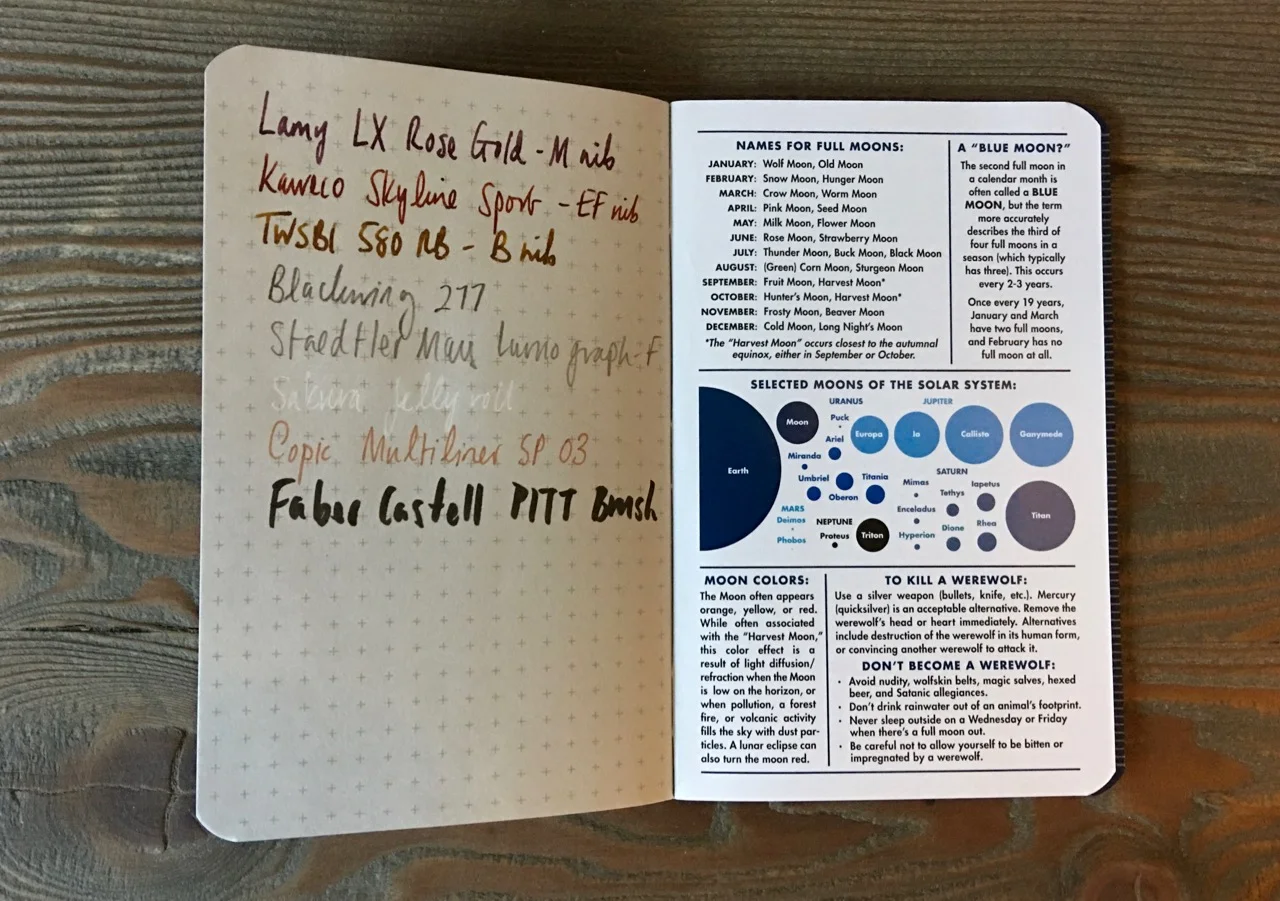 Lamy LX Rose Gold - M nib
Kaweco Skyline Sport - EF nib
TWSBI 580 RB - B nib
Blackwing 277
Staedtler Mars Lumograph - F
Sakura jelly roll
Copic Multiliner SP 03
Faber Castell PITT Brush
NAMES FOR FULL MOONS:
JANUARY: Wolf Moon, Old Moon
FEBRUARY: Snow Moon, Hunger Moon
MARCH: Crow Moon, Worm Moon
APRIL: Pink Moon, Seed Moon
MAY: Milk Moon, Flower Moon
JUNE: Rose Moon, Strawberry Moon
JULY: Thunder Moon, Buck Moon, Black Moon
AUGUST: (Green) Corn Moon, Sturgeon Moon
SEPTEMBER: Fruit Moon, Harvest Moon*
OCTOBER: Hunter's Moon, Harvest Moon*
NOVEMBER: Frosty Moon, Beaver Moon
DECEMBER: Cold Moon, Long Night's Moon
*The "Harvest Moon" occurs closest to the autumnal
equinox, either in September or October.
A "BLUE MOON?"
The second full moon in
a calendar month is
often called a BLUE
MOON, but the term
more accurately
describes the third of
four full moons in a
season (which typically
has three). This occurs
every 2-3 years.
Once every 19 years,
January and March
have two full moons,
and February has no
full moon at all.
SELECTED MOONS OF THE SOLAR SYSTEM:
Earth
Moon
URANUS
Puck
Ariel
Miranda
Umbriel
Oberon
Titania
JUPITER
Europa
Io
Callisto
Ganymede
MARS
Deimos
Phobos
NEPTUNE
Proteus
Triton
SATURN
Mimas
Enceladus
Hyperion
Tethys
Dione
Iapetus
Rhea
Titan
MOON COLORS:
The Moon often appears
orange, yellow, or red.
While often associated
with the "Harvest Moon,"
this color effect is a
result of light diffusion/
refraction when the Moon
is low on the horizon, or
when pollution, a forest
fire, or volcanic activity
fills the sky with dust par-
ticles. A lunar eclipse can
also turn the moon red.
TO KILL A WEREWOLF:
Use a silver weapon (bullets, knife, etc.). Mercury
(quicksilver) is an acceptable alternative. Remove the
werewolf's head or heart immediately. Alternatives
include destruction of the werewolf in its human form,
or convincing another werewolf to attack it.
DON'T BECOME A WEREWOLF:
· Avoid nudity, wolfskin belts, magic salves, hexed
beer, and Satanic allegiances.
· Don't drink rainwater out of an animal's footprint.
· Never sleep outside on a Wednesday or Friday
when there's a full moon out.
· Be careful not to allow yourself to be bitten or
impregnated by a werewolf.